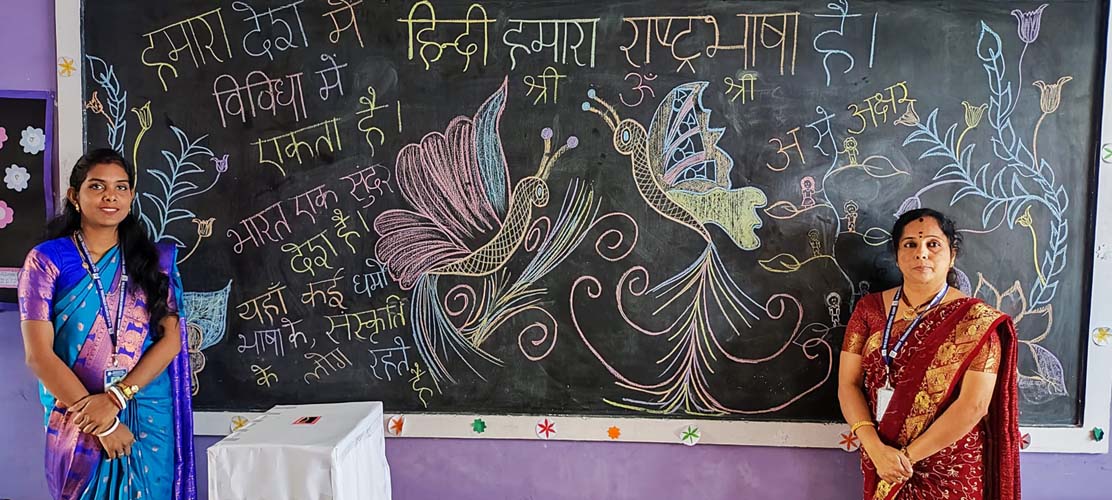 हमारा देश में
विविधा में
एकता है।
भारत एक सुंदर
देश है।
यहाँ कई धर्मो
भाषा के, संस्कृति
के लोग रहते है
हिन्दी हमारा राष्ट्रभाषा है।
श्री ॐ श्री
अ से अक्षर